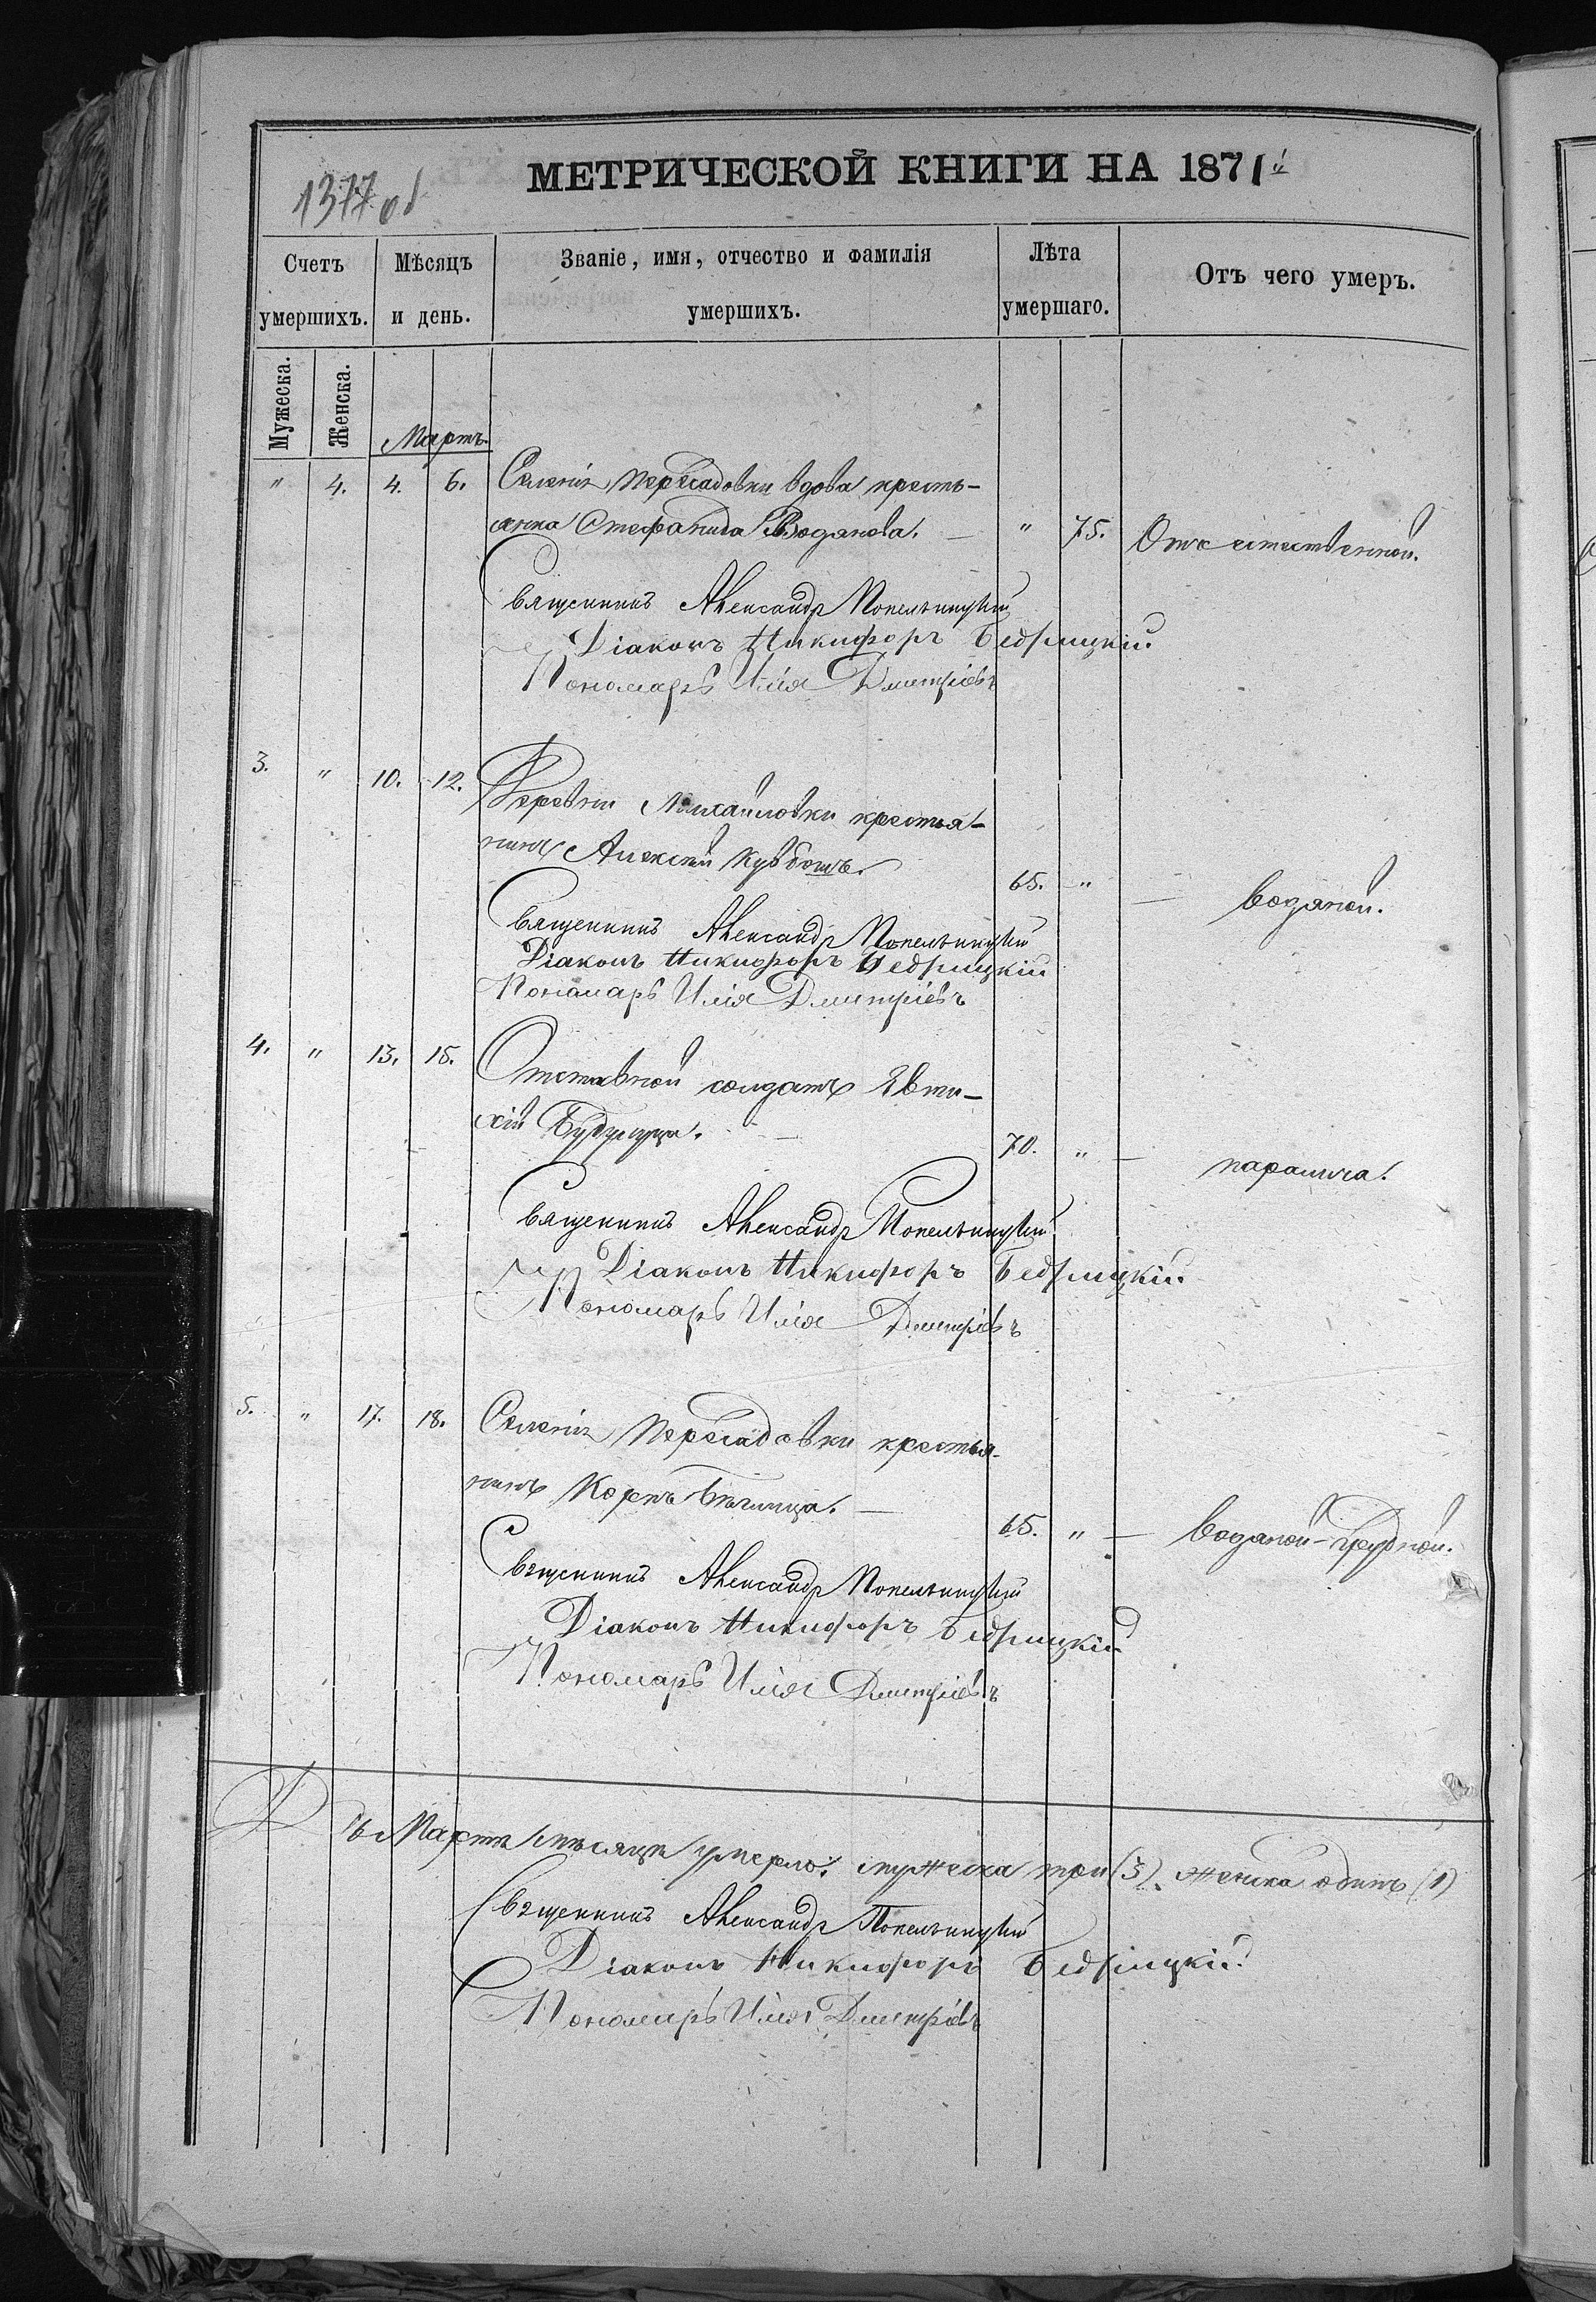 МЕТРИЧЕСКОЙ КНИГИ НА 1871й
1377 об
Счетъ умершихъ.
Мѣсяцъ и день.
Званіе, имя, отчество и фамилія умершихъ.
Лѣта умершаго.
Отъ чего умеръ.
Мужеска.
Женска.
Мартъ.
" 4. 4. 6. Селенія Пересадовки вдова кресть-
янка Стефанида Водянова. — " 75. Отъ естественной.
Священникъ Александръ Попельницкій
Діаконъ Никифоръ Бедрицкій
Пономарь Илія Дмитріевъ
3. " 10. 12. Деревни Михайловки крестья-
нинъ Алексѣй
65. " — водяной.
Священникъ Александръ Попельницкій
Діаконъ Никифоръ Бедрицкій
Пономарь Илія Дмитріевъ
4. " 13. 15. Отставной солдатъ Явти-
хій
70. " — паралича.
Священникъ Александръ Попельницкій
Діаконъ Никифоръ Бедрицкій
Пономарь Илія Дмитріевъ
5. " 17. 18. Селенія Пересадовки крестья-
нинъ Корнъ
65. " — водяной-грудной.
Священникъ Александръ Попельницкій
Діаконъ Никифоръ Бедрицкій
Пономарь Илія Дмитріевъ
Въ Мартѣ мѣсяцѣ умерло: мужеска три (3). женска одинъ (1)
Священникъ Александръ Попельницкій
Діаконъ Никифоръ Бедрицкій
Пономарь Илія Дмитріевъ